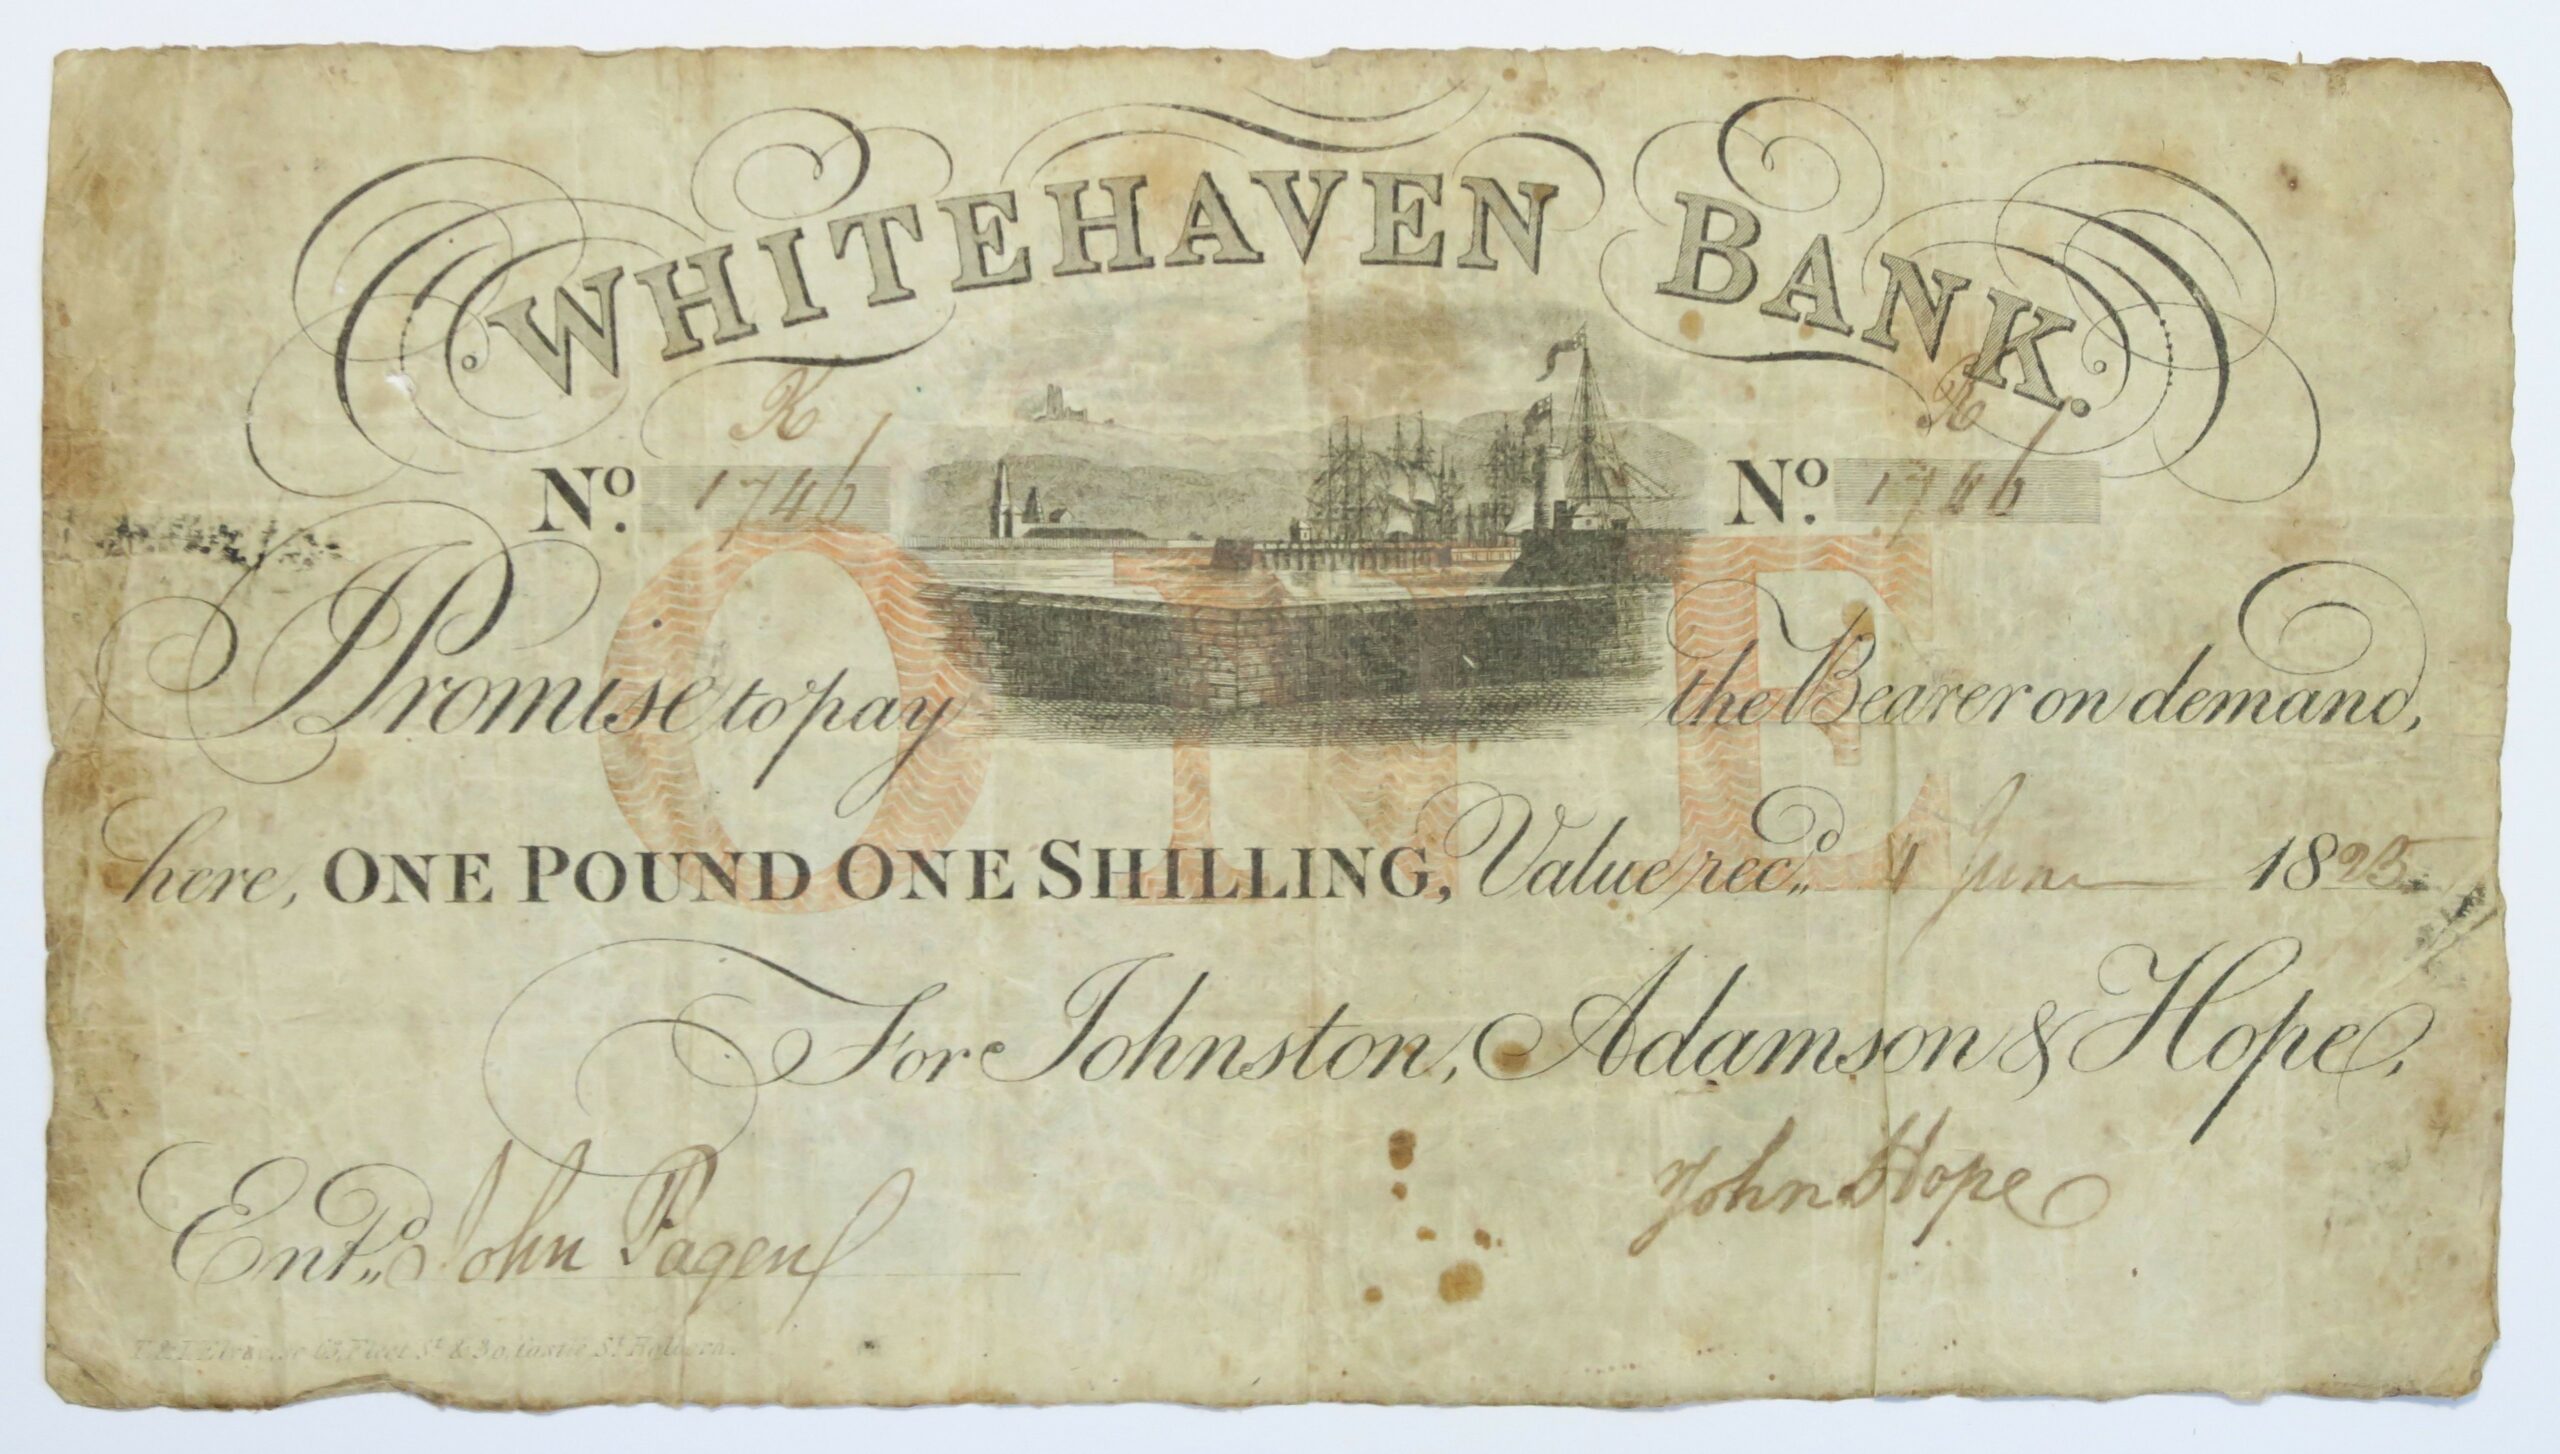 WHITEHAVEN BANK.
K K
No. 1746 No. 1746
ONE
Promise to pay the Bearer on demand,
here, ONE POUND ONE SHILLING, Value rec.d 1 June 1825
For Johnston, Adamson & Hope,
John Hope
Ent.d John Pagen
63, Fleet St. & 30, Castle St. Holborn.